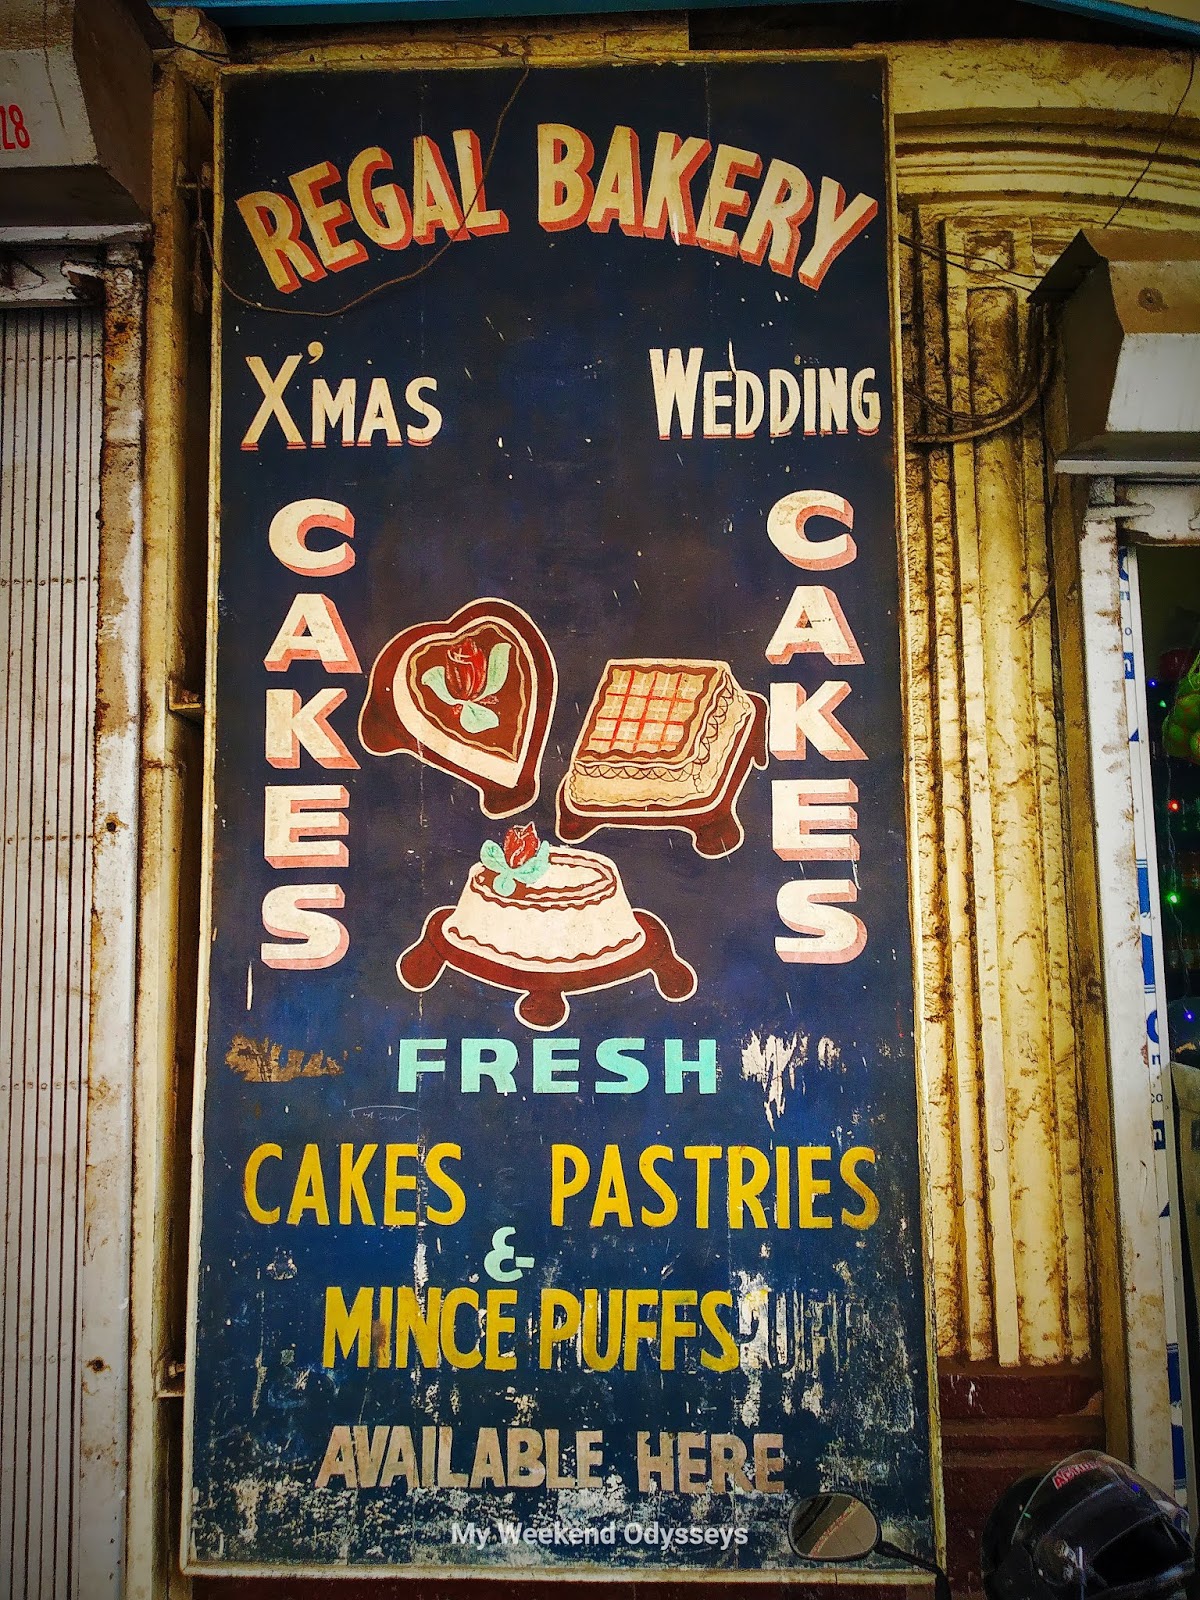 REGAL BAKERY
X'MAS
CAKES
WEDDING
CAKES
FRESH
CAKES PASTRIES
&
MINCE PUFFS
AVAILABLE HERE
My Weekend Odysseys